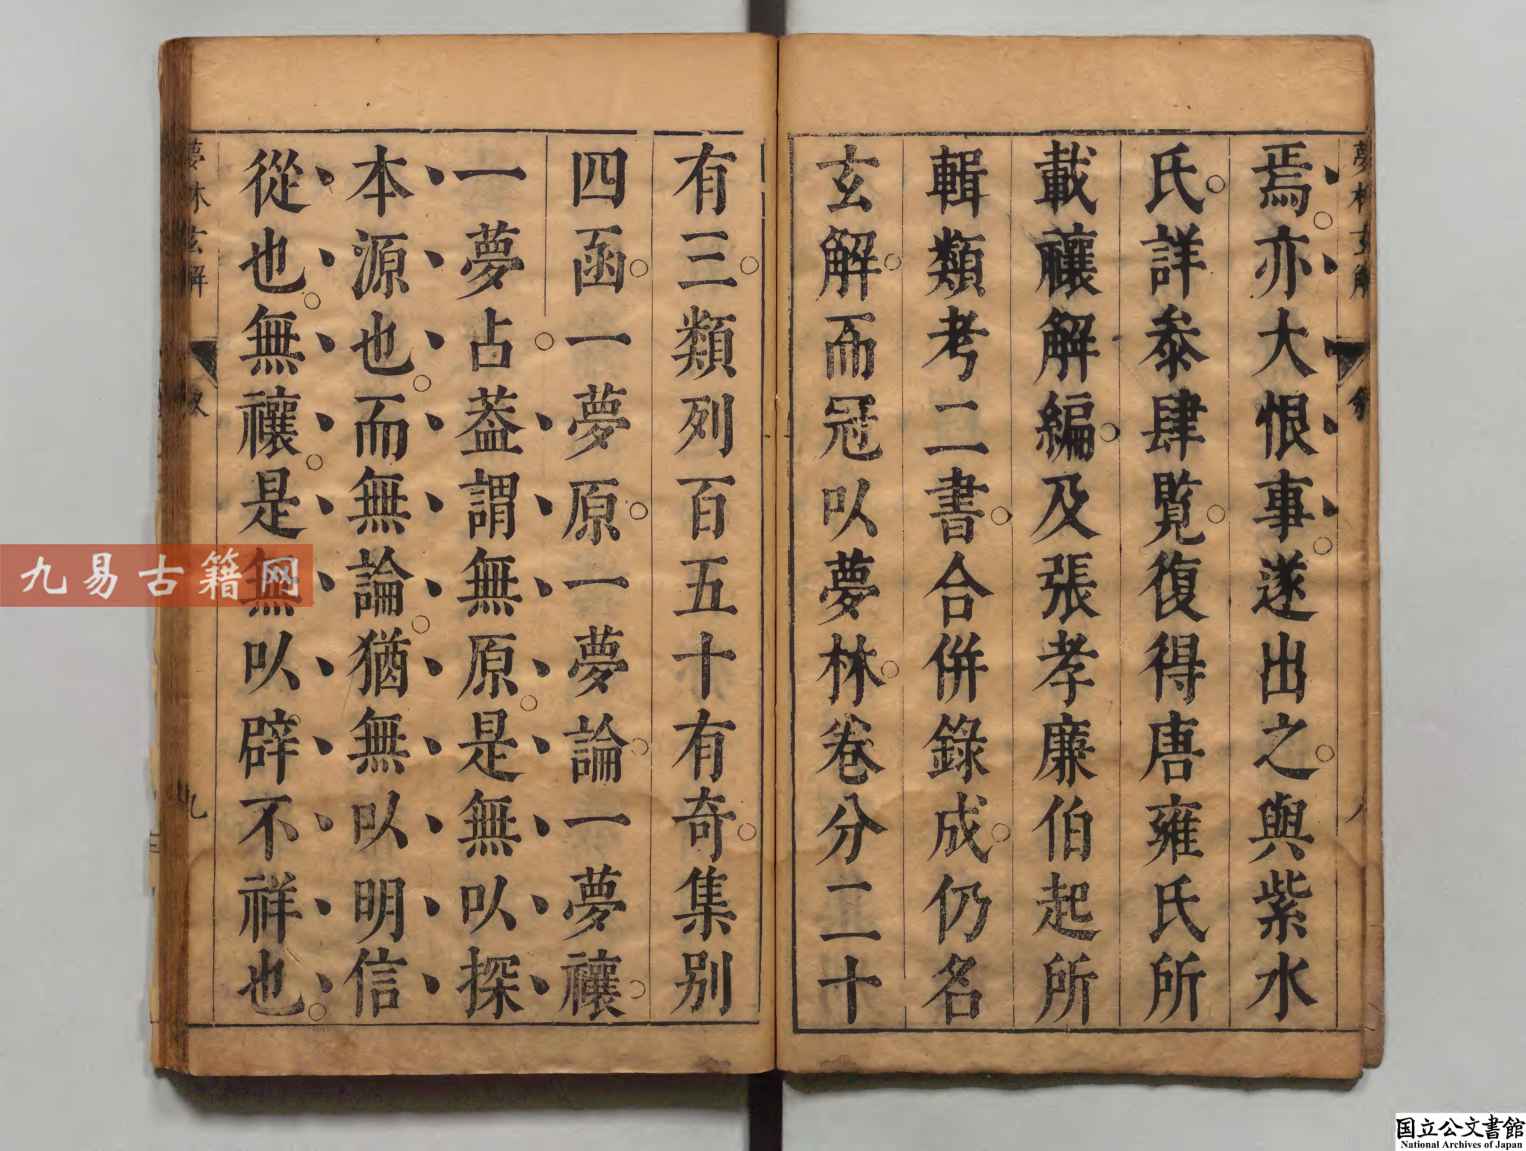 焉亦大恨事遂出之與紫水
氏詳叅肆覧復得唐雍氏所
載禳解編及張孝廉伯起所
輯類考二書合併錄成仍名
玄解而冠以夢林卷分二十
有三類列百五十有奇集別
四函一夢原一夢論一夢禳
一夢占葢謂無原是無以探
本源也而無論猶無以明信
從也無禳是無以辟不祥也
夢林玄解
敘
九
九易古籍网
国立公文書館
National Archives of Japan